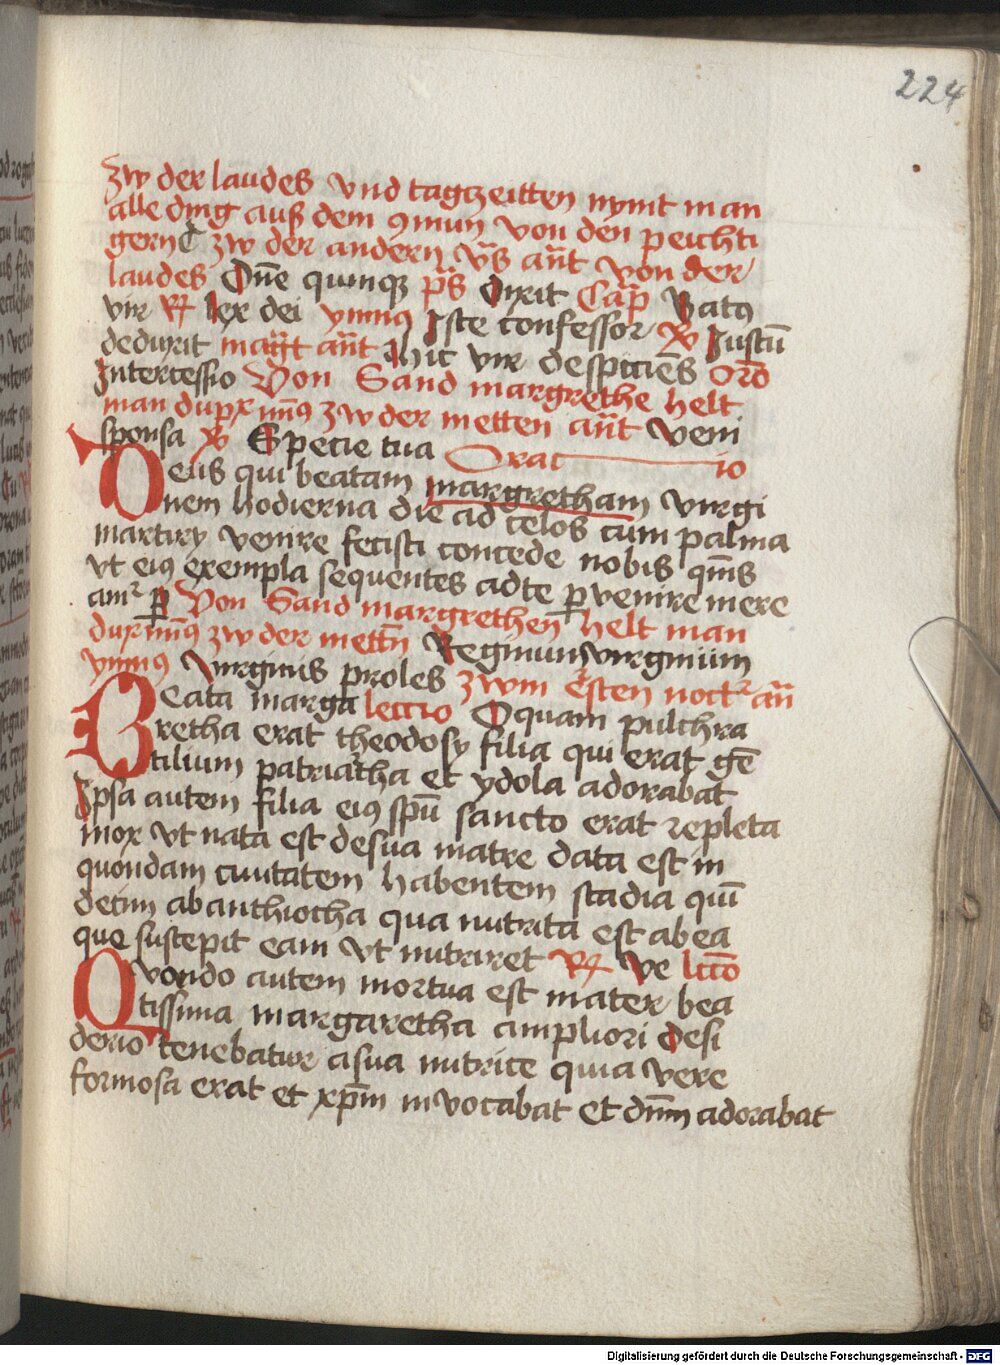 224
zw der laudes vnd tagczeitten nymt man
alle ding auß dem 9mun von den peichti
gern zw der andern vs̄ an̄t von der
laudes Dn̄e quinqꝫ p̄s Dixit Cap̄ Beatꝰ
vir R lex dei ymnꝰ Iste confessor V Iustū
deduxit maḡt an̄t hic vir despiciēs orō
Intercessio Von Sand margrethe helt
man dupx imꝰ zw der metten an̄t veni
sponsa V Specie tua Orac io
Deus qui beatam margretham virgi
nem hodierna die ad celos cum palma
martiry venire fecisti concede nobis qm̄s
vt eiꝰ exempla sequentes adte ꝑvenire mere
amr ꝑ Von Sand margrethen helt man
dupximꝰ zw der mettn̄ Reginum virginum
ymnꝰ Virginis proles zwm Ersten noctr an̄
Beata marga lectio O quam pulchra
retha erat theodosy filia qui erat gē
tilium patriarcha et ydola adorabat
Ipsa autem filia eiꝰ spū sancto erat repleta
mox vt nata est desua matre data est in
quondam ciuitatem habentem stadia quī
decim abanthiocha qua nutrita est abea
que suscepit eam vt nutriret R ve lccō
Quondo autem mortua est mater bea
tissima margaretha ampliori desi
derio tenebatur asua nutrice quia vere
formosa erat et xp̄m invocabat et dn̄m adorabat
Digitalisierung gefördert durch die Deutsche Forschungsgemeinschaft - DFG